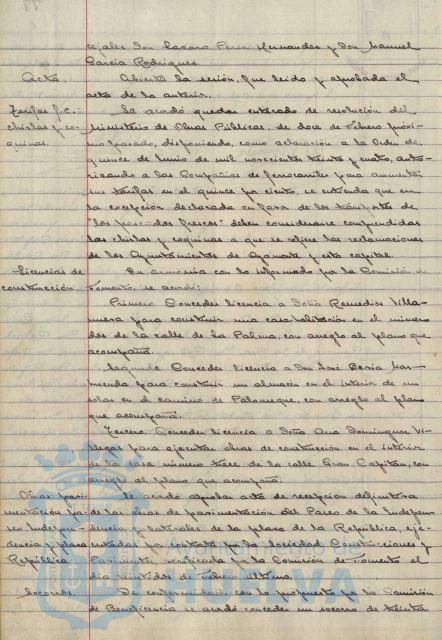 cejales Don Lazaro Perez Hernandez y Don Manuel
Garcia Rodriguez.
Acta. Abierta la sesión, fue leido y aprobada el
acta de la anterior.
Tarifas f.c.: Se acordó quedar enterado de resolución del
chirlas y co- Ministerio de Obras Públicas, de doce de Febrero próxi-
quinas. mo pasado, disponiendo, como aclaración a la Orden de
quince de Junio de mil novecientos treinta y cuatro, auto-
rizando a las Compañías de ferrocarriles para aumentar
sus tarifas en el quince por ciento, se entienda que en
la excepción declarada en favor de los transportes de
"los pescados frescos" deben considerarse comprendidas
las chirlas y coquinas a que se refiere las reclamaciones
de los Ayuntamientos de Ayamonte y esta capital.
Licencias de En armonia con lo informado por la Comisión de
construcción. Fomento, se acordó:
Primero. Conceder licencia a Doña Remedios Villa-
nueva para construir una casa habitación en el número
dos de la calle de la Palma, con arreglo al plano que
acompaña.
Segundo. Conceder licencia a Don José Baria Mar-
menda para construir un almacén en el interior de un
solar en el camino de Palomeque, con arreglo al plano
que acompaña.
Tercero. Conceder licencia a Doña Ana Dominguez Vi-
llegas para ejecutar obras de construcción en el interior
de la casa número trece de la calle Gran Capitán, con
arreglo al plano que acompaña.
Obras pavi- Se acordó aprobar acta de recepción definitiva
mentación Pa- de las obras de pavimentación del Paseo de la Indepen-
seo Indepen- dencia y laterales de la plaza de la República, eje-
dencia y plaza cutadas por contrata por la Sociedad Construcciones y
República. Pavimentos, verificada por la Comisión de Fomento el
día veintidos de Febrero último.
Socorros. De conformidad con lo propuesto por la Comisión
de Beneficencia se acordó conceder un socorro de treinta
Ayuntamiento de
HUELVA